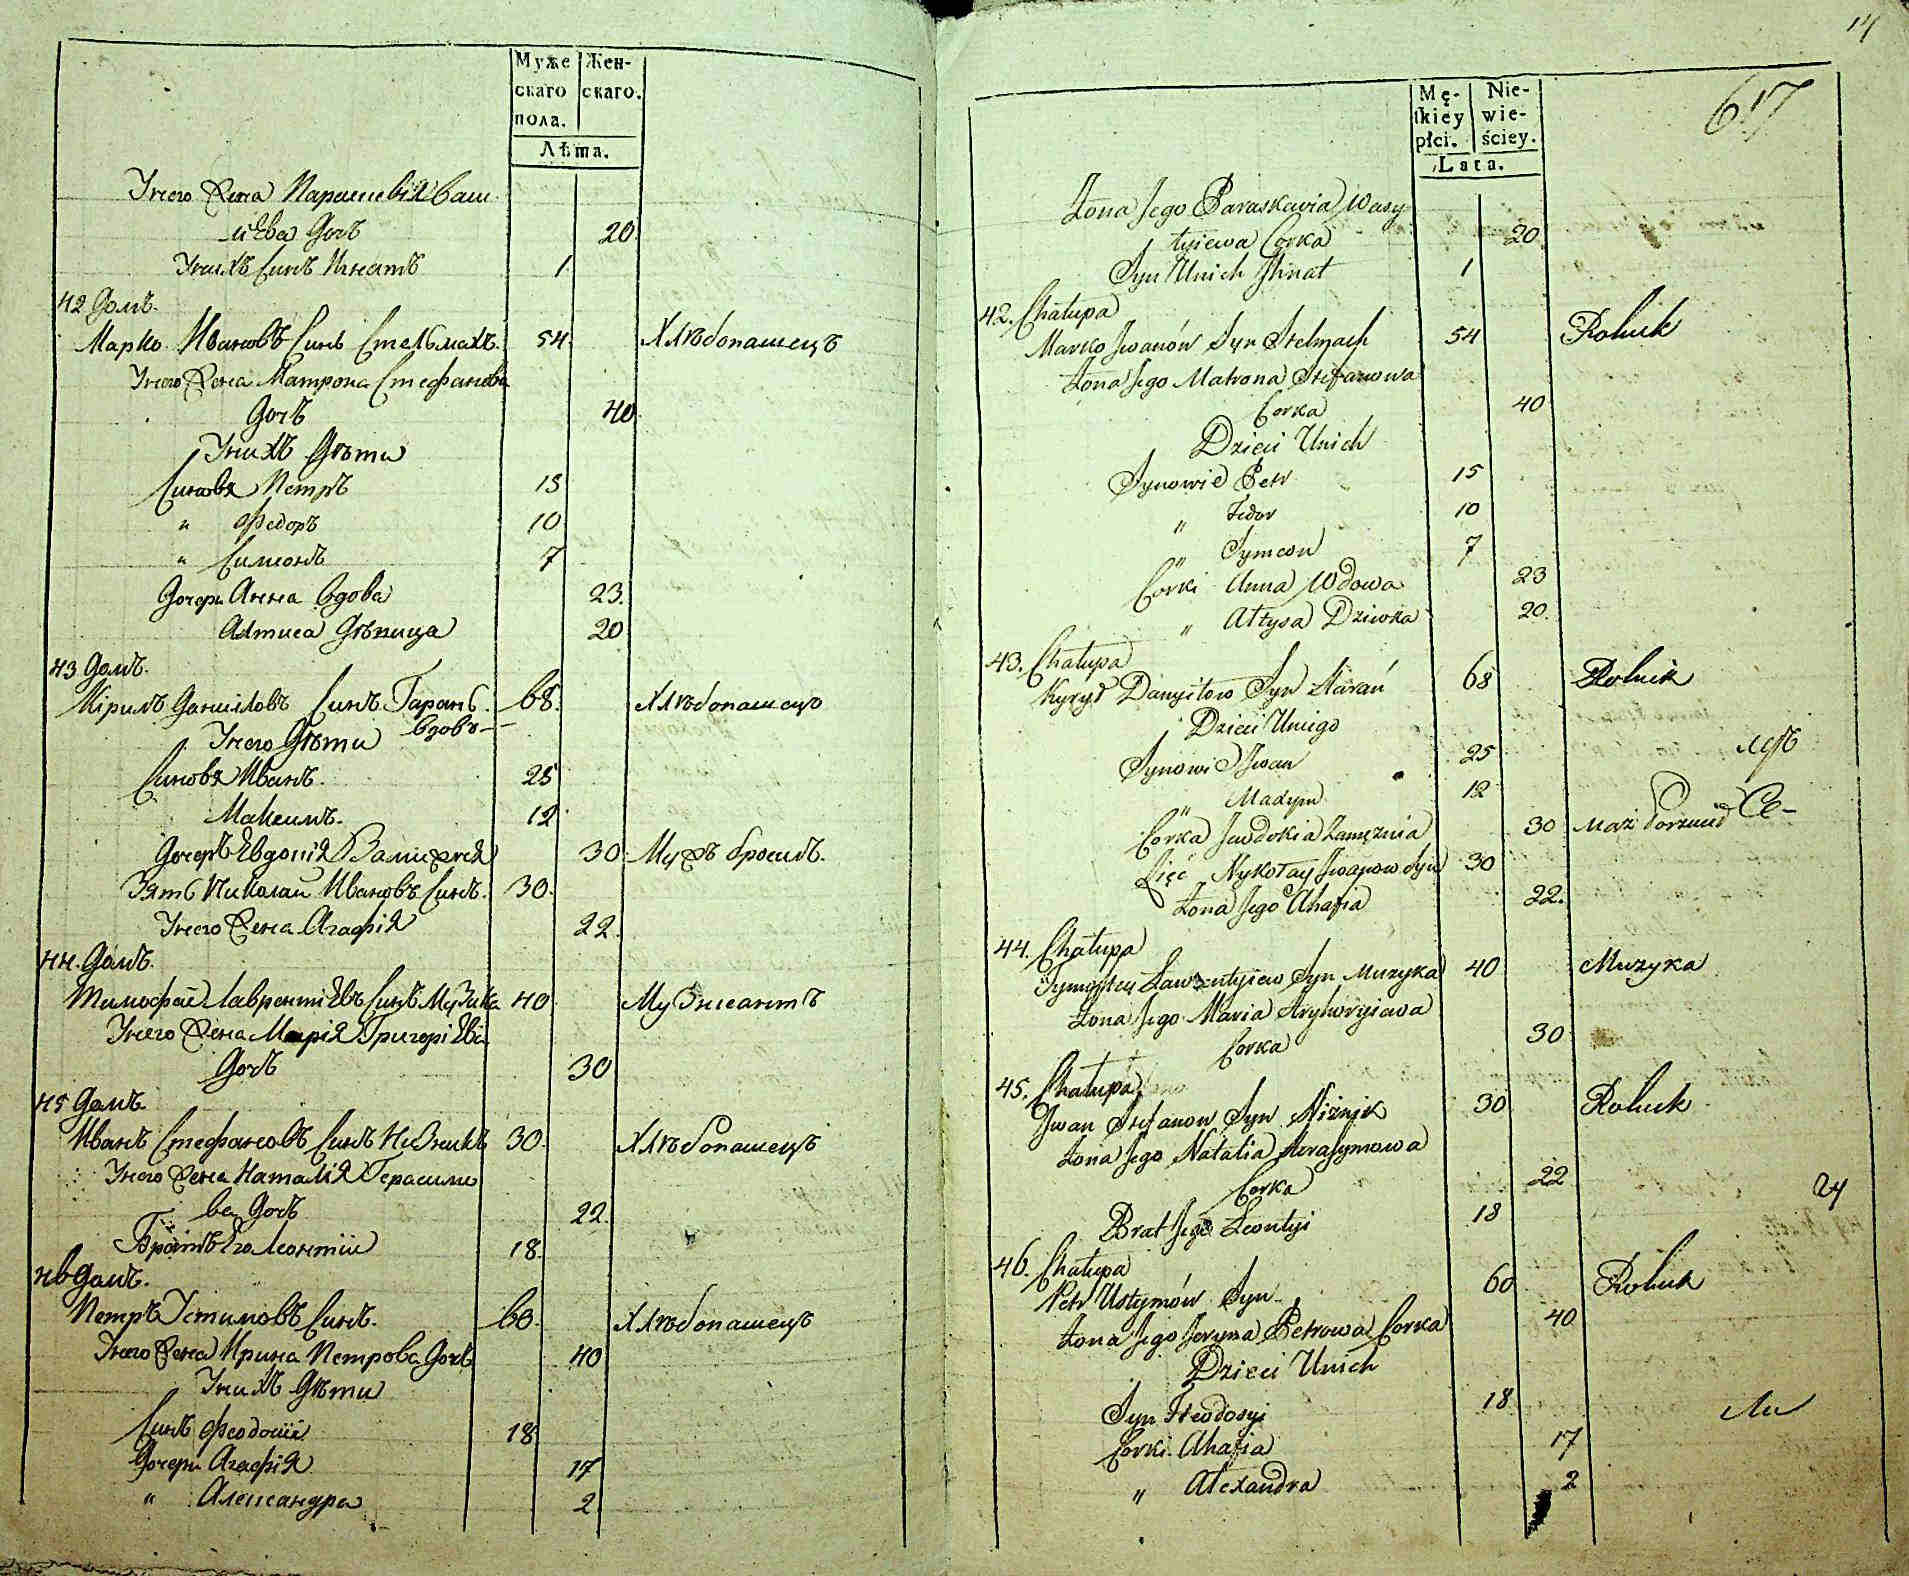 Муже
скаго
пола.
Жен-
скаго.
Лѣта.
Унего Жена Параскевія Васи
лієва Дочь 20
Унихъ Синъ Игнатъ 1
42 Домъ.
Марко Ивановъ Синъ Стельмахъ. 54 Хлѣбопашецъ
Унего Жена Матрона Стефанова
Дочь 40
Унихъ Дѣти
Синовя Петръ 15
" Федоръ 10
" Симеонъ 7
Дочери Анна Вдова 23.
Алтиса Дѣвица 20
43 Домъ.
Кірилъ Даниловъ Синъ Гарань. 68. Хлѣбопашецъ
вдовъ
Унего Дѣти
Синовя Иванъ 25
Максимъ. 12
Дочеръ Евдокія Замужня 30 Мужъ бросилъ.
Зять Николай Ивановъ Синъ. 30.
Унего Жена Агафія 22.
44. Домъ.
Тимофей Лаврентієвъ Синъ Музика 40 Музикантъ
Унего Жена Марія Григорієва
Дочь 30
45 Домъ.
Иванъ Стефановъ Синъ Нѣзникъ 30. Хлѣбопашецъ
Унего Жена Наталія Герасимо
ва Дочь 22.
Братъ Его Леонтій 18.
46 Домъ.
Петръ Устимовъ Синъ. 60. Хлѣбопашецъ
Унего Жена Ирина Петрова Дочь 40
Унихъ Дѣти
Синъ Феодосій 18
Дочери Агафія 17
" Александра 2
14
617
Mę-
skiey
płci.
Nie-
wie-
ściey.
Lata.
Żona Jego Paraskawia Wasy
łyiewa Corka 20
Syn Unich Ihnat 1
42. Chałupa
Marko Iwanów Syn Stelmach 54 Rolnik
Żona Jego Matrona Stefanowa
Corka 40
Dzieci Unich
Synowie Petr 15
" Fedor 10
" Symeon 7
Corki Anna Wdowa 23
" Ałtysa Dziewka 20.
43. Chałupa
Kyrył Danyłow Syn Harań 68 Rolnik
Dzieci Uniego
Synowie Iwan 25
" Maxym 12
Corka Jewdokia Zamężnia 30 Mąż Porzucił
Zięć Nykołay Iwanow Syn 30
Żona Jego Ahafia 22.
44. Chałupa
Tymoftey Ławrentyiew Syn Muzyka 40 Muzyka
Żona Jego Maria Hryhoryiewa
Corka 30
45. Chałupa
Iwan Stefanow Syn Niznik 30 Rolnik
Żona Jego Natalia Herasymowa
Corka 22
Brat Jego Leontyi 18
46. Chałupa
Petr Ustymów Syn 60 Rolnik
Żona Jego Jeryna Petrowa Corka 40
Dzieci Unich
Syn Fteodosyi 18
Corki Ahafia 17
" Alexandra 2